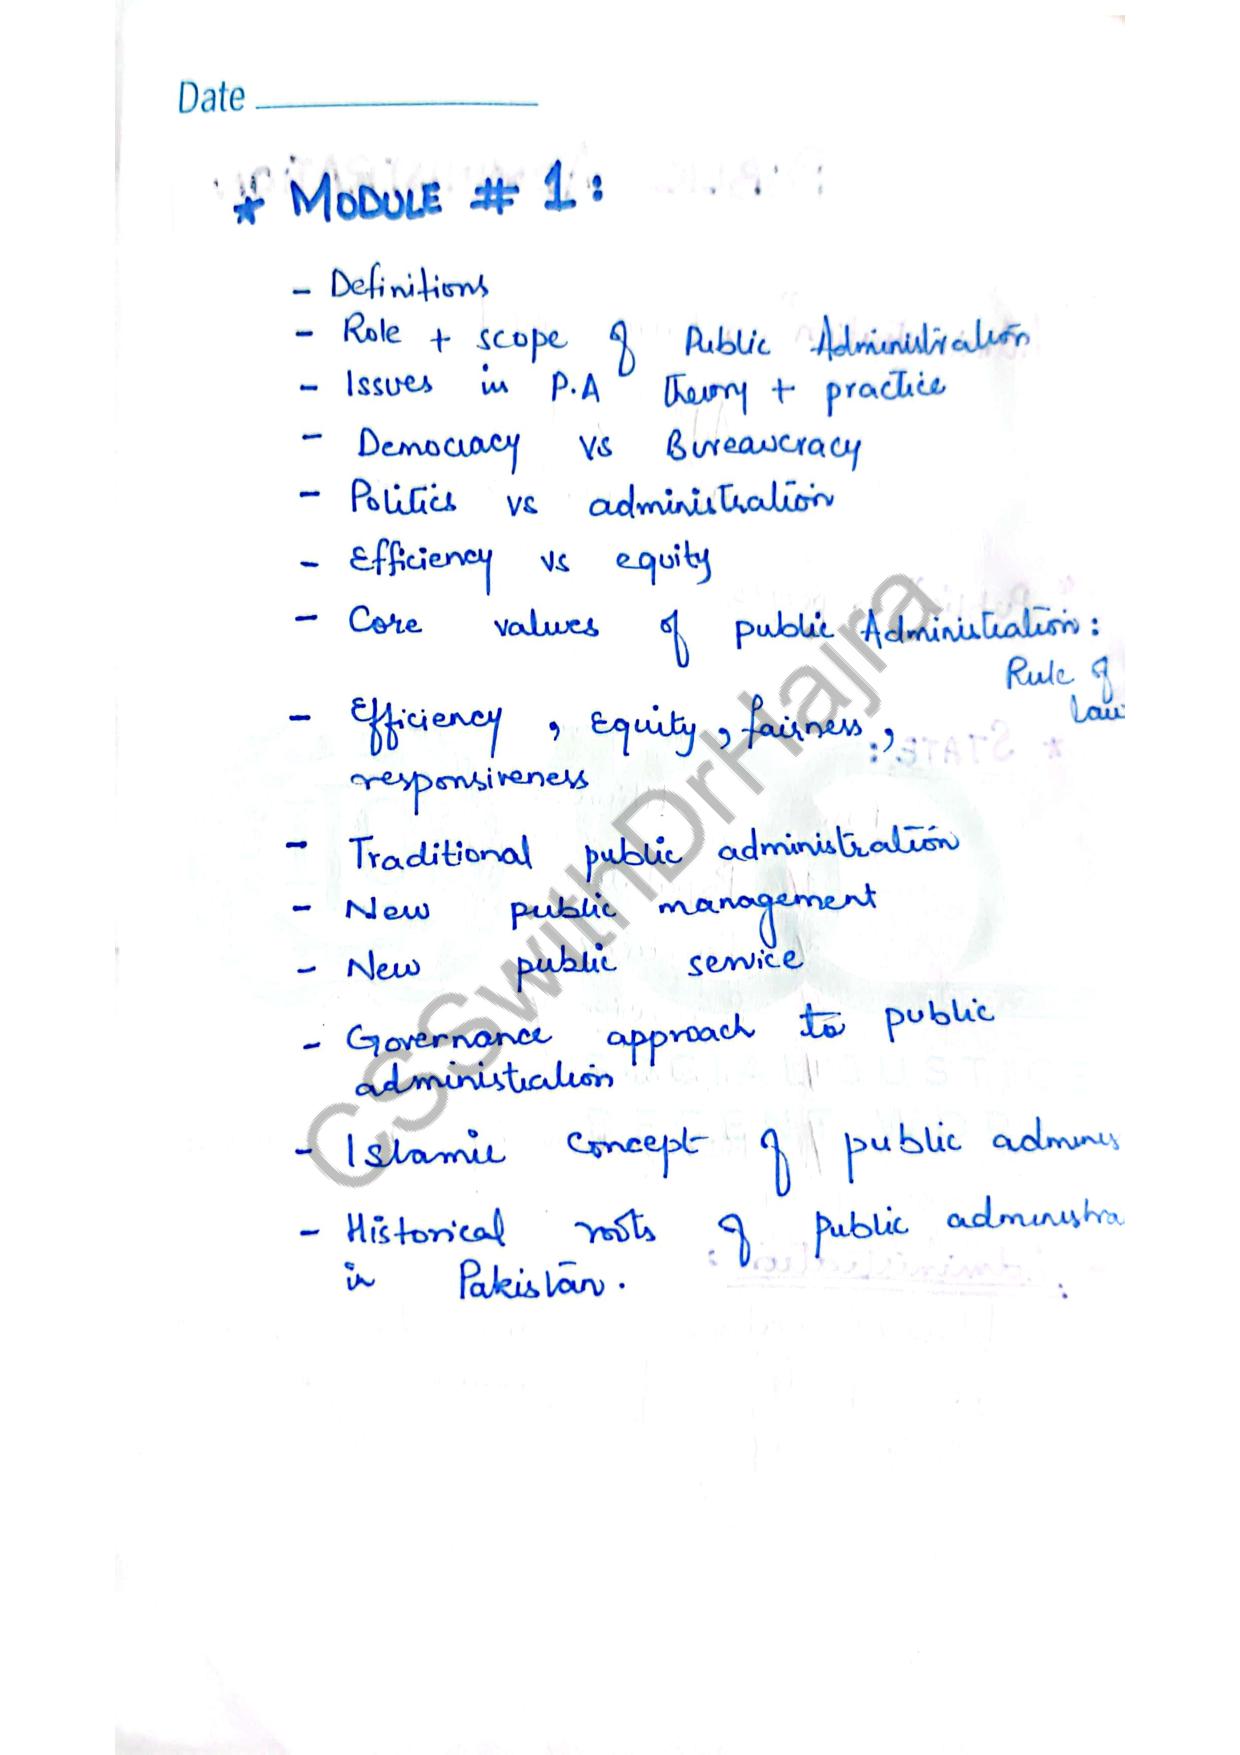 Date
* MODULE # 1:
- Definitions
- Role + scope of Public Administration
- Issues in P.A theory + practice
- Democracy vs Bureaucracy
- Politics vs administration
- Efficiency vs equity
- Core values of public Administration:
Rule of
law
- Efficiency, Equity, fairness,
responsiveness
- Traditional public administration
- New public management
- New public service
- Governance approach to public
administration
- Islamic concept of public adminis
- Historical roots of public administra
in Pakistan.
CSSwithDrHajra